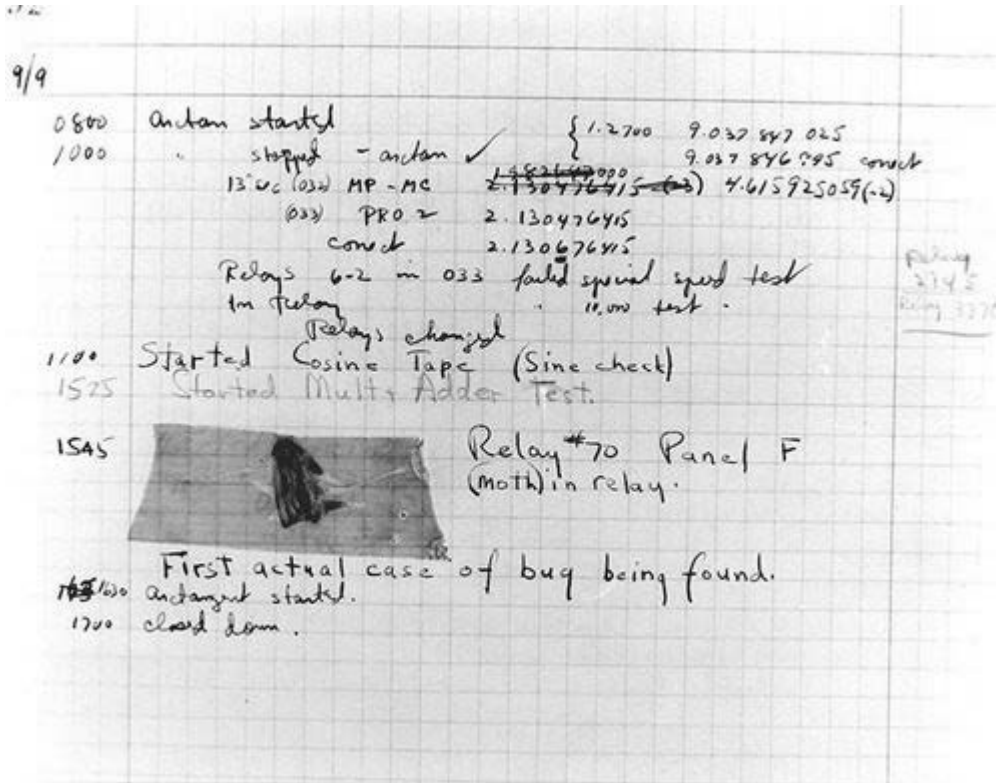 9/9
0800 arctan started { 1.2700 9.037 847 025
1000 " stopped - arctan ✓ 9.037 846 995 correct
13" UC (032) MP - MC 2.130476415 (-3) 4.615925059(-2)
(033) PRO 2 2.130476415
correct 2.130676415
Relays 6-2 in 033 failed special speed test
In Relay " 10,000 test .
Relays changed
1100 Started Cosine Tape (Sine check)
1525 Started Mult+ Adder Test.
1545 Relay #70 Panel F
(moth) in relay.
First actual case of bug being found.
1630 arctangent started.
1700 closed down.
Relay
Relay